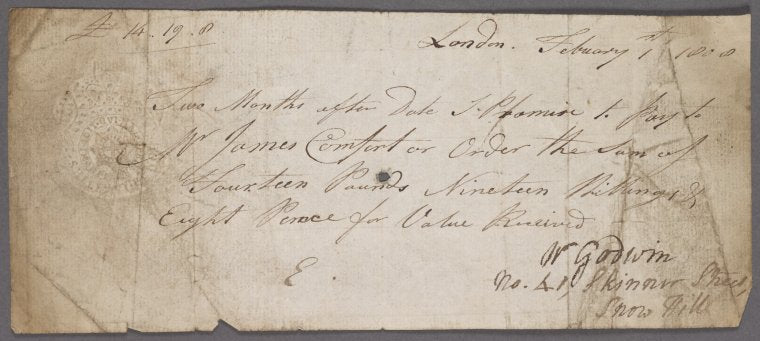 £ 14.19.8
London. Febuary 1st 1808
Two Months after Date I Promise to pay to
Mr James Comfort or Order the Sum of
Fourteen Pounds Nineteen Shillings &
Eight Pence for Value Received
E.
W Godwin
No. 41, Skinner Street,
Snow Hill